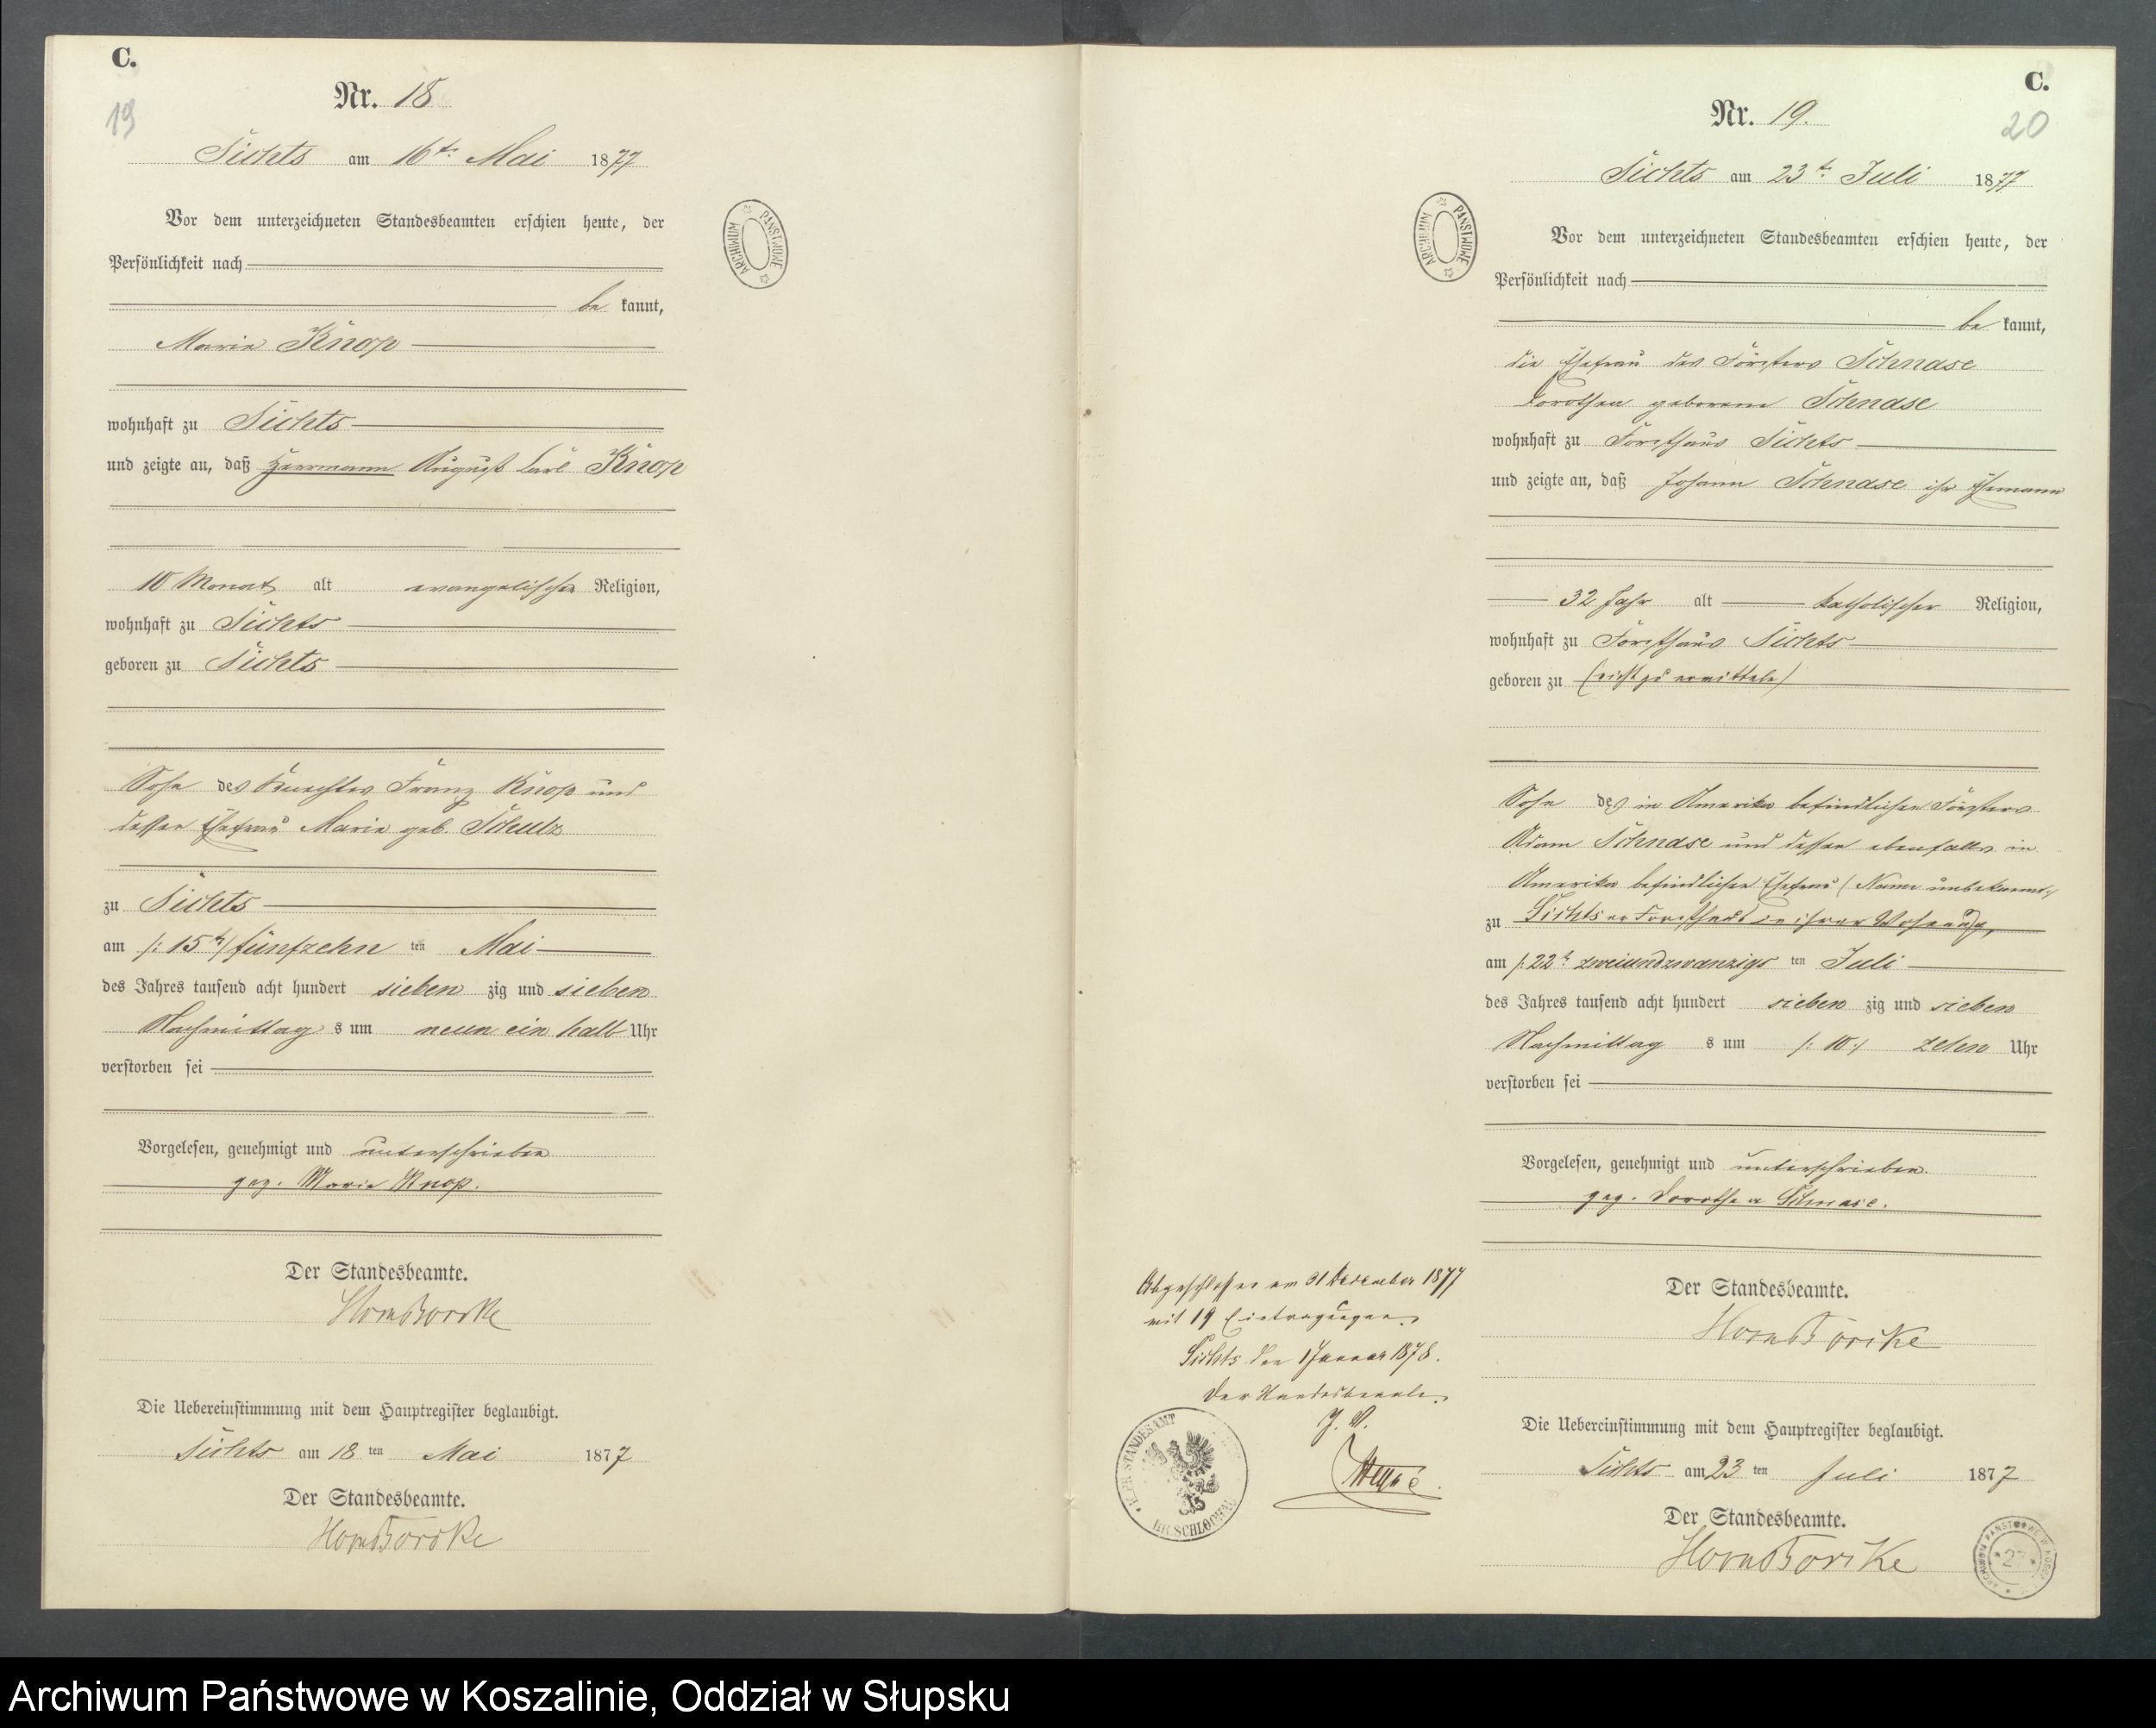 C.
19
Nr. 18
Sichts am 16ten Mai 1877
Vor dem unterzeichneten Standesbeamten erschien heute, der
Persönlichkeit nach
be kannt,
Marie Knop
wohnhaft zu Sichts
und zeigte an, daß Herrmann August Carl Knop
10 Monat alt evangelischer Religion,
wohnhaft zu Sichts
geboren zu Sichts
Sohn des Knechtes Franz Knop und
dessen Ehefrau Marie geb. Schulz
zu Sichts
am /: 15te/ fünfzehn ten Mai
des Jahres tausend acht hundert sieben zig und sieben
Nachmittag s um neun ein halb Uhr
verstorben sei
Vorgelesen, genehmigt und unterschrieben
gez. Marie Knop.
Der Standesbeamte.
Die Uebereinstimmung mit dem Hauptregister beglaubigt.
Sichts am 18 ten Mai 1877
Der Standesbeamte.
ARCHIWUM PAŃSTWOWE
C.
20
Nr. 19.
Sichts am 23t. Juli 1877
Vor dem unterzeichneten Standesbeamten erschien heute, der
Persönlichkeit nach
be kannt,
die Ehefrau des Försters Schnase
Dorothea geborene Schnase
wohnhaft zu Forsthaus Sichts
und zeigte an, daß Johann Schnase ihr Ehemann
32 Jahr alt katholischer Religion,
wohnhaft zu Forsthaus Sichts
geboren zu (nicht zu ermitteln)
Sohn des in Amerika befindlichen Försters
Adam Schnase und dessen ebenfalls in
Amerika befindlichen Ehefrau (Name unbekannt)
zu Sichts er Forsthaus in ihrer Wohnung,
am /: 22t zweiundzwanzigs ten Juli
des Jahres tausend acht hundert sieben zig und sieben
Nachmittag s um /: 10 :/ zehn Uhr
verstorben sei
Vorgelesen, genehmigt und unterschrieben.
gez. Dorothea Schnase.
Der Standesbeamte.
Die Uebereinstimmung mit dem Hauptregister beglaubigt.
Sichts am 23 ten Juli 1877
Der Standesbeamte.
ARCHIWUM PAŃSTWOWE
Abgeschlossen am 31 December 1877
mit 19 Eintragungen.
Sichts den 1 Januar 1878.
Der Standesbeamte.
J. V.
STANDESAMT
KR. SCHLOCHAU
Archiwum Państwowe w Koszalinie, Oddział w Słupsku